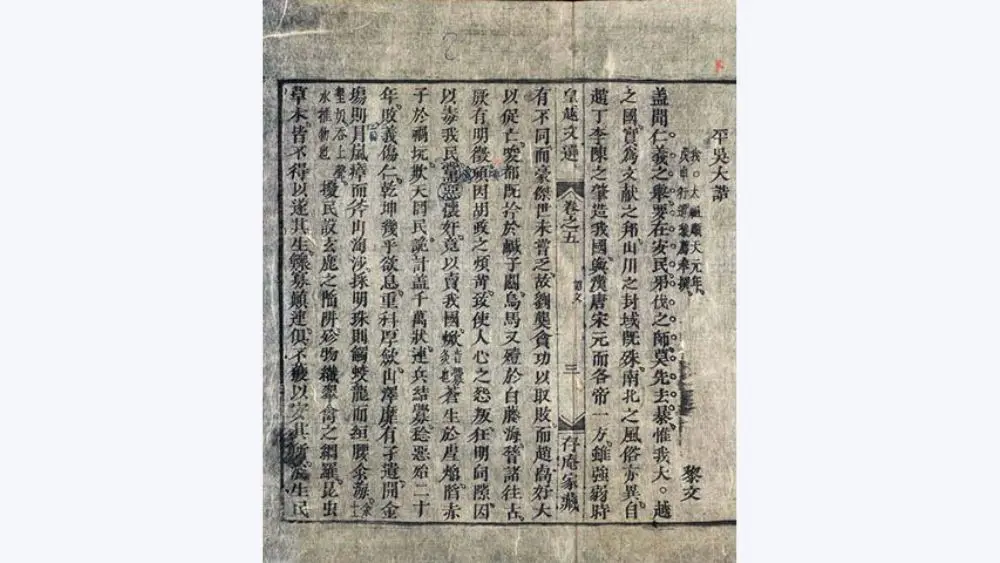 平吳大誥
我○太祖順天元年
黎文
盖聞仁義之舉要在安民弔伐之師莫先去暴惟我大○越
之國實爲文献之邦山川之封域既殊南北之風俗亦異自
趙丁李陳之肇造我國與漢唐宋元而各帝一方雖強弱時
皇越文選 卷之五 誥文 三 存庵家藏
有不同而豪傑世未嘗乏故劉龑貪功以取敗而趙卨好大
以促亡唆都既擒於鹹子關烏馬又殪於白藤海諸往古
厥有明徵頃因胡政之煩苛致使人心之怨叛狂明伺隙因
以毒我民黨惡懷奸竟以賣我國焮音釁炙也蒼生於虐焰陷赤
子於禍坑欺天罔民詭計盖千萬狀連兵結釁稔惡殆二十
年敗義傷仁乾坤幾乎欲息重科厚歛山澤靡有孑遺開金
塲則冒嵐瘴而斧山淘沙採明珠則觸蛟龍而絙腰汆海汆土
墾切吞上聲水推物也擾民設玄鹿之陷阱殄物織翠禽之網羅昆虫
草木皆不得以遂其生鰥寡顛連俱不獲以安其所浚生民